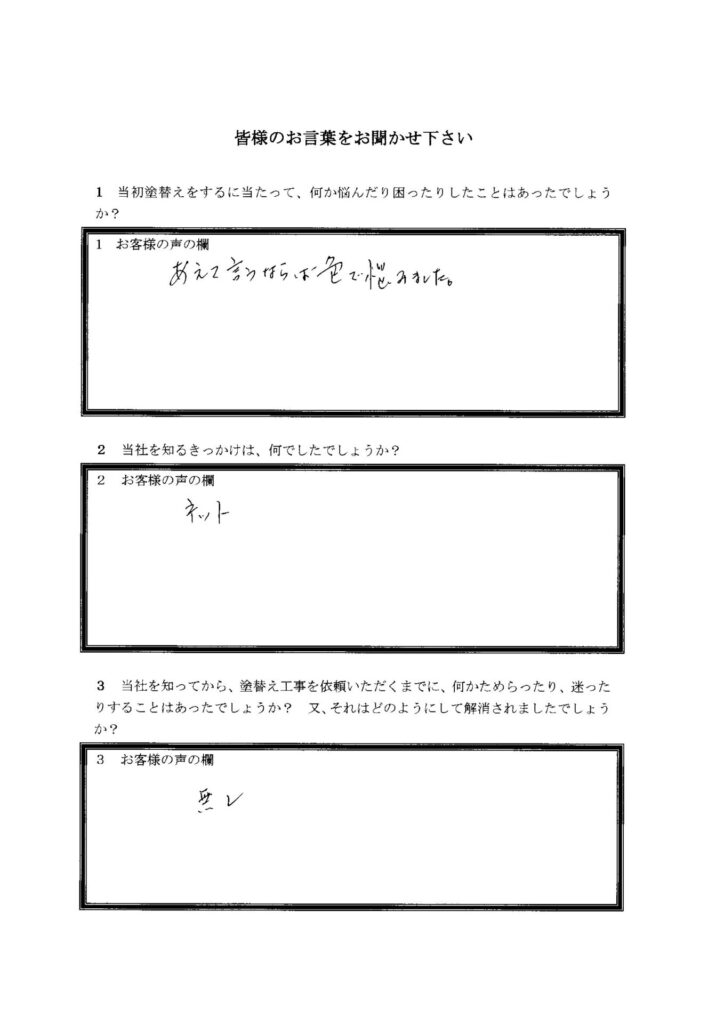 皆様のお言葉をお聞かせ下さい
1　当初塗替えをするに当たって、何か悩んだり困ったりしたことはあったでしょう
か？
1　お客様の声の欄
あえて言うならば色で悩みました。
2　当社を知るきっかけは、何でしたでしょうか？
2　お客様の声の欄
ネット
3　当社を知ってから、塗替え工事を依頼いただくまでに、何かためらったり、迷った
りすることはあったでしょうか？　又、それはどのようにして解消されましたでしょう
か？
3　お客様の声の欄
無し